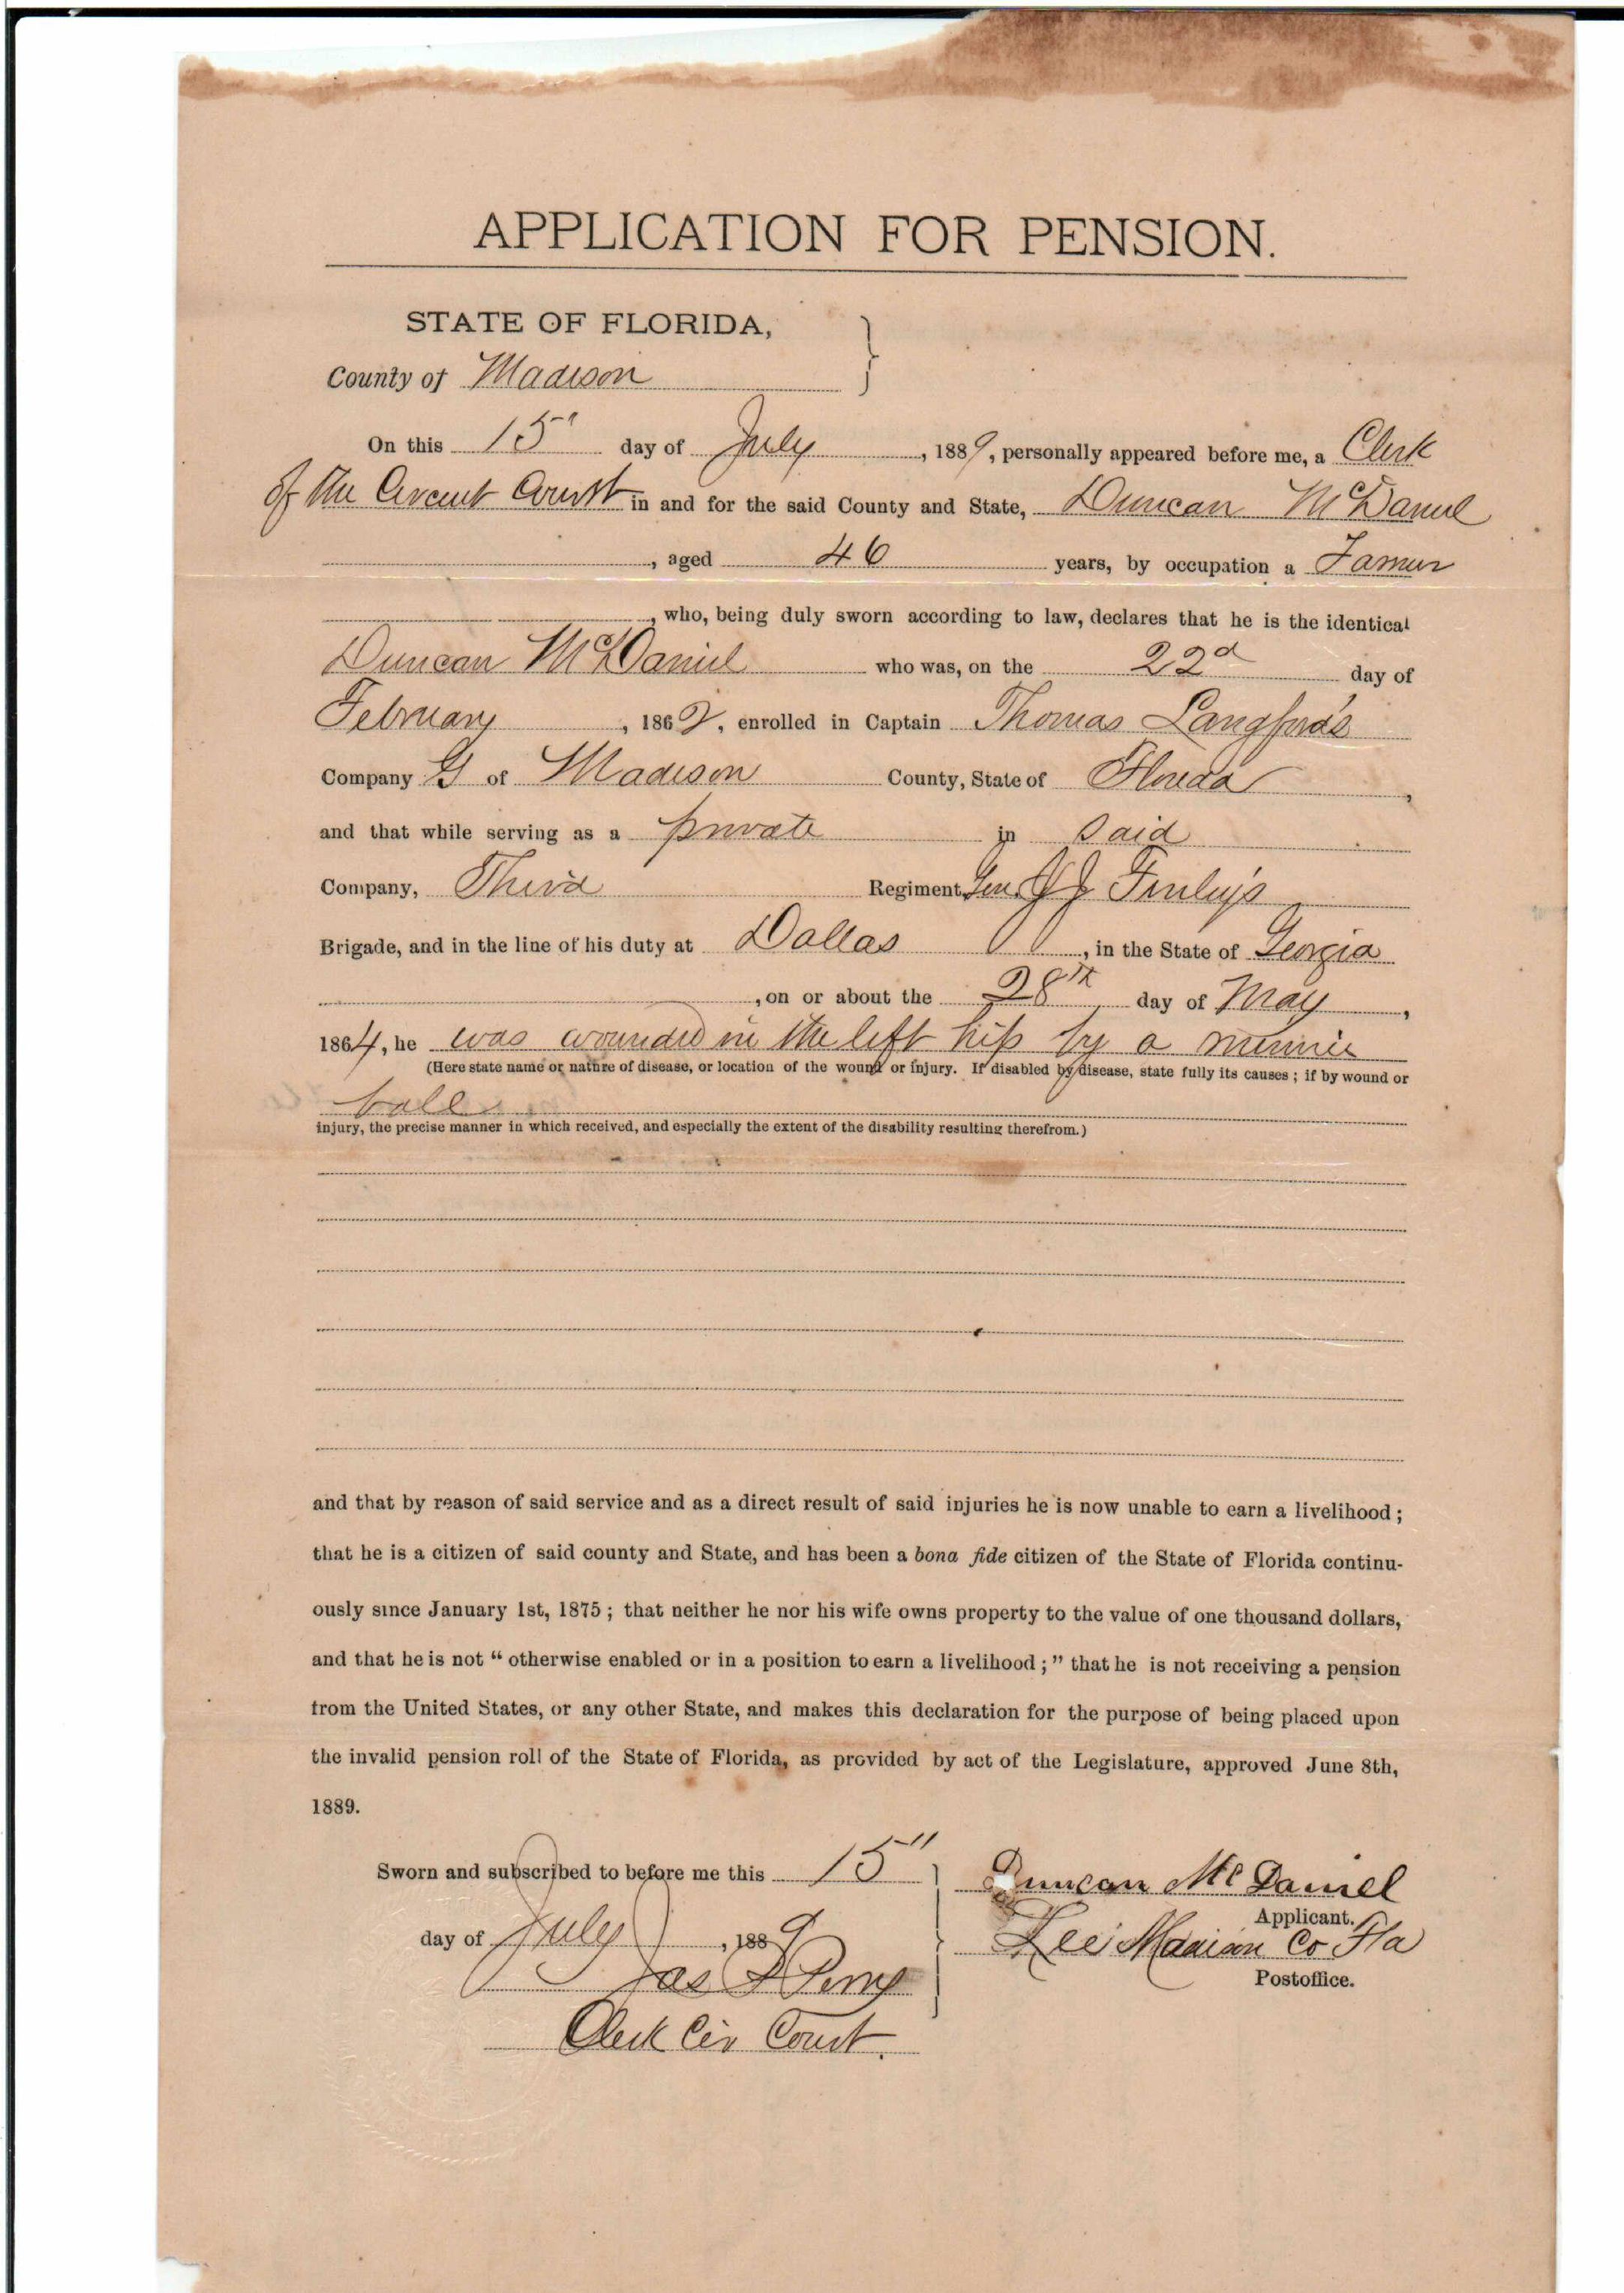 APPLICATION FOR PENSION.
STATE OF FLORIDA,
County of Madison
On this 15" day of July, 1889, personally appeared before me, a Clerk
of the Circuit Court in and for the said County and State, Duncan McDaniel
, aged 46 years, by occupation a Farmer
, who, being duly sworn according to law, declares that he is the identical
Duncan McDaniel who was, on the 22d day of
February, 1862, enrolled in Captain Thomas Langford's
Company G of Madison County, State of Florida,
and that while serving as a private in said
Company, Third Regiment, Gen. J J Finley's
Brigade, and in the line of his duty at Dallas, in the State of Georgia
, on or about the 28th day of May,
1864, he was wounded in the left hip by a minnie
(Here state name or nature of disease, or location of the wound or injury. If disabled by disease, state fully its causes; if by wound or
ball
injury, the precise manner in which received, and especially the extent of the disability resulting therefrom.)
and that by reason of said service and as a direct result of said injuries he is now unable to earn a livelihood;
that he is a citizen of said county and State, and has been a bona fide citizen of the State of Florida continu-
ously since January 1st, 1875; that neither he nor his wife owns property to the value of one thousand dollars,
and that he is not "otherwise enabled or in a position to earn a livelihood;" that he is not receiving a pension
from the United States, or any other State, and makes this declaration for the purpose of being placed upon
the invalid pension roll of the State of Florida, as provided by act of the Legislature, approved June 8th,
1889.
Sworn and subscribed to before me this 15"
day of July, 1889
Jas D Perry
Clerk Cir Court.
Duncan Mc Daniel
Applicant.
Lee Madison Co Fla
Postoffice.